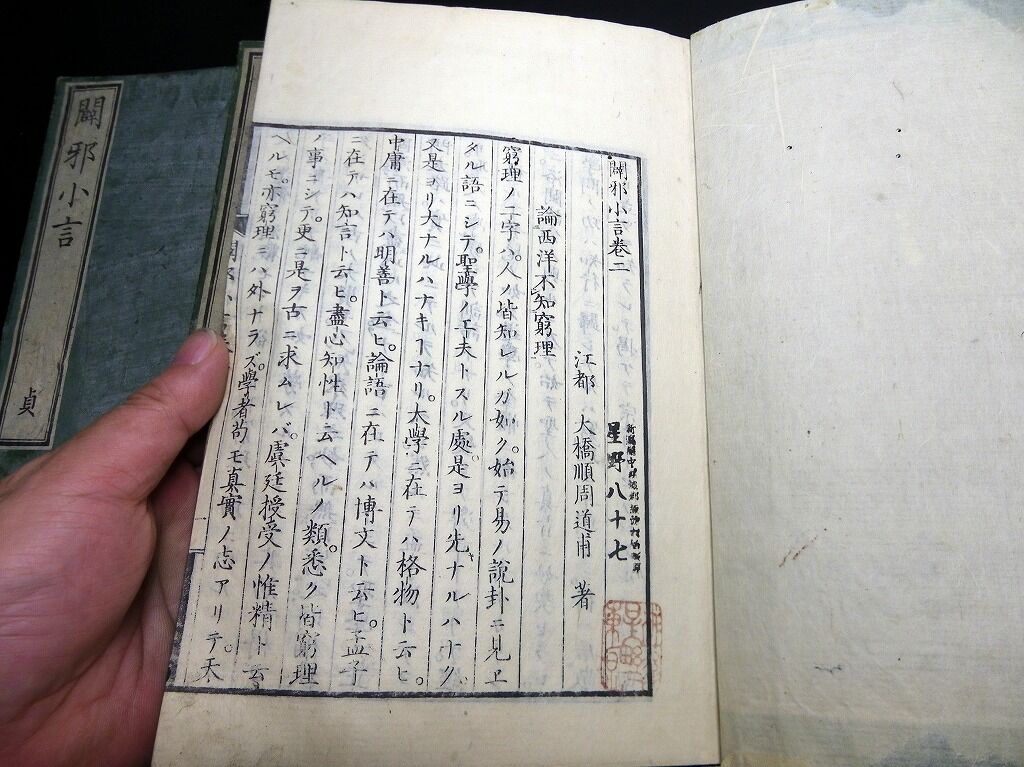 闢邪小言
貞
闢邪小言巻二
江都 大橋順周道甫 著
星野八十七
論西洋不知窮理
窮理ノ二字ハ。人ノ皆知レルガ如ク。始テ易ノ説卦ニ見ヱ
タル語ニシテ。聖學ノ工夫トスル處。是ヨリ先ナルハナク。
又是ヨリ大ナルハナキヿナリ。大學ニ在テハ格物ト云ヒ。
中庸ニ在テハ明善ト云ヒ。論語ニ在テハ博文ト云ヒ。孟子
ニ在テハ知言ト云ヒ。盡心知性ト云ヘルノ類。悉ク皆窮理
ノ事ニシテ。更ニ是ヲ古ニ求ムレバ。虞廷授受ノ惟精ト云
ヘルモ。亦窮理ニハ外ナラズ。學者苟モ真實ノ志アリテ。天